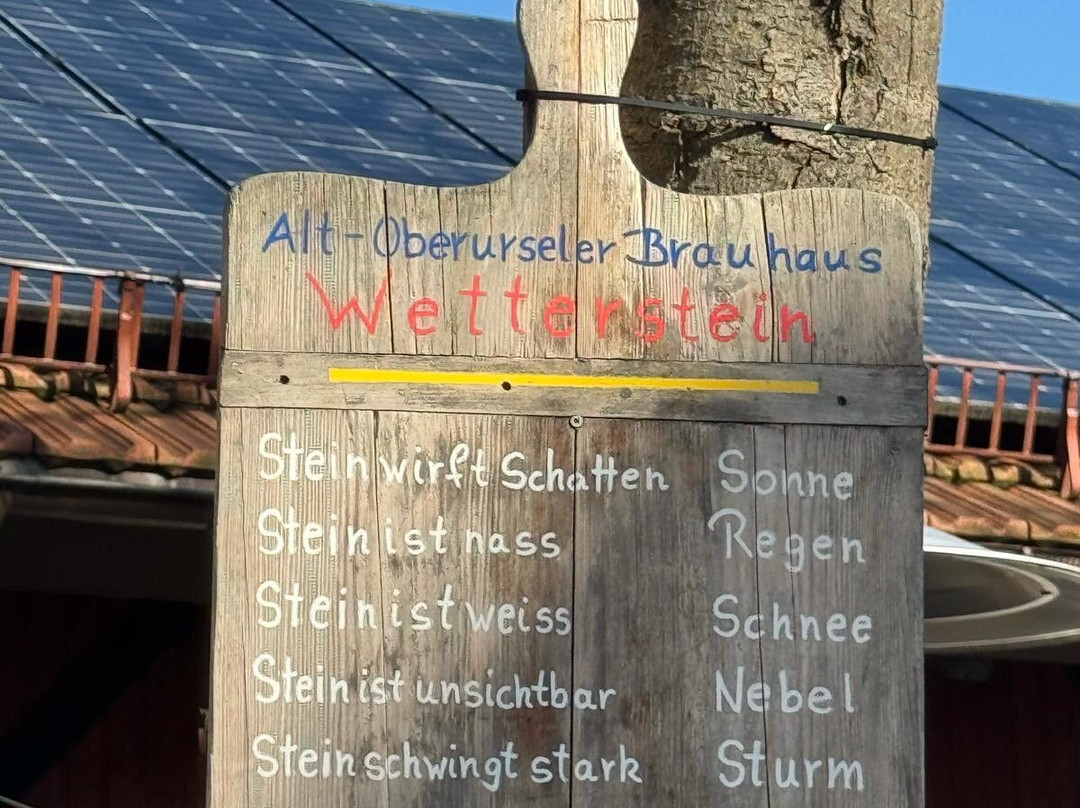 Alt-Oberurseler Brauhaus
Wetterstein
Stein wirft Schatten Sonne
Stein ist nass Regen
Stein ist weiss Schnee
Stein ist unsichtbar Nebel
Stein schwingt stark Sturm